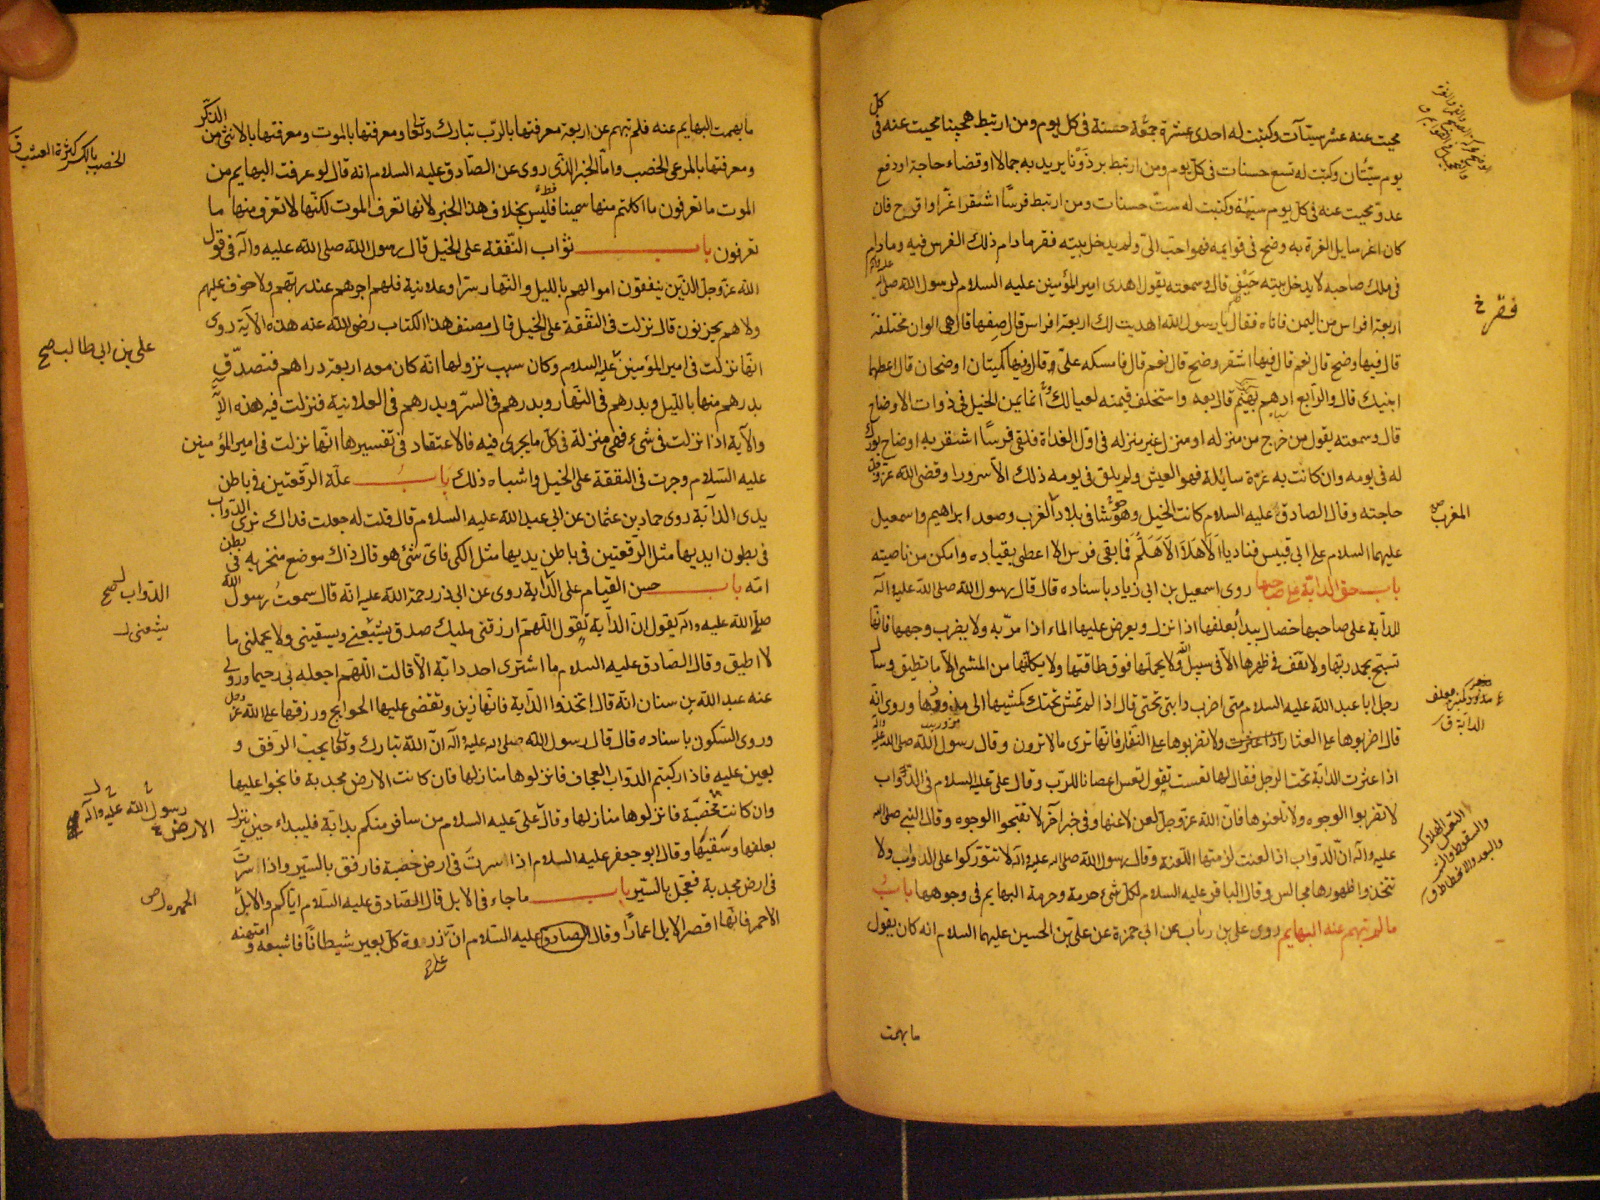 محيت عنه عشر سيّآت وكتبت له احدى عشرة حسنة فى كل يوم ومن ارتبط هجينا محيت عنه فى كل
يوم سيّئتان وكتبت له تسع حسنات فى كل يوم ومن ارتبط برذونا يريد به جمالا او قضاء حاجة او دفع
عدوّ محيت عنه فى كل يوم سيّئة وكتبت له ستّ حسنات ومن ارتبط فرسًا اشقر اغرّا او اقرح فان
كان اغر سايل الغرة به وضح فى قوايمه فهو احبّ الىّ ولم يدخل بيته فقر ما دام ذلك الفرس فيه وما دام
فى ملك صاحبه لا يدخل بيته حيف قال وسمعته يقول اهدى امير المؤمنين عليه السلام لرسول الله صلى الله عليه وآله
اربعة افراس من اليمن فاتاه فقال يا رسول الله اهديت لك اربعة افراس قال صفها قال هى الوان مختلفة
قال فيها وضح قال نعم قال فيها اشقر وضح قال نعم قال فامسكه علىّ وقال وفيها كميتان اوضحان قال اعطهما
ابنيك قال والرابع ادهم بهيم قال بعه واستخلف قيمته لعيالك انما يمن الخيل فى ذوات الاوضاح
قال وسمعته يقول من خرج من منزله او منزل غير منزله فى اول الغداة فلقى فرسًا اشقر به اوضاح بورك
له فى يومه وان كانت به غرّة سايلة فهو العيش ولم يلق فى يومه ذلك الا سرورا وقضى الله عزّ وجل
حاجته وقال الصادق عليه السلام كانت الخيل وحوشا فى بلاد العرب وصعد ابراهيم واسمعيل
عليهما السلام على ابى قبيس فناديا الا هلا الا هلم فما بقى فرس الا اعطى بقياده وامكن من ناصيته
باب حق الدابّة على صاحبها روى اسمعيل بن ابى زياد باسناده قال قال رسول الله صلى الله عليه وآله
للدابة على صاحبها خصال يبدأ بعلفها اذا نزل ويعرض عليها الماء اذا مرّ به ولا يضرب وجهها فانها
تسبّح بحمد ربّها ولا تقف فى ظهرها الا فى سبيل الله ولا يحملها فوق طاقتها ولا يكلّفها من المشى الا ما تطيق وسأل
رجل ابا عبد الله عليه السلام متى اضرب دابتى تحتى قال اذا لم تمش تحتك كمشيها الى مذودها وروى انه
قال اضربوها على العثار ولا تضربوها على النفار فانها ترى ما لا ترون وقال رسول الله صلى الله عليه وآله
اذا عثرت الدابّة تحت الرجل فقال لها تعست تقول تعس اعصانا للربّ وقال على عليه السلام فى الدوّاب
لا تضربوا الوجوه ولا تلعنوها فان الله عزّ وجل لعن لاعنها وفى خبر آخر لا تقبحوا الوجوه وقال النبى صلى الله
عليه وآله انّ الدوّاب اذا لعنت لزمتها اللعنة وقال رسول الله صلى الله عليه وآله لا تتورّكوا على الدواب ولا
تتخذوا ظهورها مجالس وقال الباقر عليه السلام لكل شئ حرمة وحرمة البهايم فى وجوهها باب
ما لم تبهم عنه البهايم روى على بن رئاب عن ابى حمزة عن على بن الحسين عليهما السلام انه كان يقول
ما بهمت
فقر خ
المغرب
الدابّة ق
ما بهمت البهايم عنه فلم تبهم عن اربعة معرفتها بالربّ تبارك وتعالى ومعرفتها بالموت ومعرفتها بالانثى من الذكر
ومعرفتها بالمرعى الخصب وامّا الخبر الذى روى عن الصّادق عليه السلام انه قال لو عرفت البهايم من
الموت ما تعرفون ما اكلتم منها سمينا قط فليس بخلاف هذا الخبر لانها تعرف الموت لكنّها لا تعرف منها ما
تعرفون باب ثواب النّفقة على الخيل قال رسول الله صلى الله عليه وآله فى قول
الله عزّ وجل الذين ينفقون اموالهم بالليل والنهار سرا وعلانية فلهم اجرهم عند ربّهم ولا خوف عليهم
ولا هم يحزنون قال نزلت فى النفقة على الخيل قال مصنف هذا الكتاب رضى الله عنه هذه الآية روى
انها نزلت فى امير المؤمنين عليه السلام وكان سبب نزولها انه كان معه اربعة دراهم فتصدّق
بدرهم منها بالليل وبدرهم فى النهار وبدرهم فى السرّ وبدرهم فى العلانية فنزلت فيه هذه الآية
والآية اذا نزلت فى شئ فهى منزلة فى كل ما يجرى فيه فالاعتقاد فى تفسيرها انها نزلت فى امير المؤمنين
عليه السلام وجرت فى النفقة على الخيل واشباه ذلك باب علة الرقعتين فى باطن
يدى الدابّة روى حماد بن عثمان عن ابى عبد الله عليه السلام قال قلت له جعلت فداك نرى الدواب
فى بطون ايديها مثل الرقعتين فى باطن يديها مثل الكى فاىّ شئ هو قال ذاك موضع منخريه فى بطن
امّه باب حسن القيام على الدابة روى عن ابى ذر رحمة الله عليه انه قال سمعت رسول الله
صلى الله عليه وآله يقول ان الدابة تقول اللهمّ ارزقنى مليك صدق يشبعنى ويسقينى ولا يحملنى ما
لا اطيق وقال الصادق عليه السلام ما اشترى احد دابّة الا قالت اللهمّ اجعله بى رحيما وروى
عنه عبد الله بن سنان انه قال اتخذوا الدابة فانها زين وتقضى عليها الحوايج ورزقها على الله عزّ وجل
وروى السكونى باسناده قال قال رسول الله صلى الله عليه وآله انّ الله تبارك وتعالى يحبّ الرفق و
يعين عليه فاذا ركبتم الدوّاب العجاف فانزلوها منازلها فان كانت الارض مجدبة فانجوا عليها
وان كانت مخصبة فانزلوها منازلها وقال علىّ عليه السلام من سافر منكم بدابّة فليبدأ حين ينزل
بعلفها وسقيها وقال ابو جعفر عليه السلام اذا سرت فى ارض خصبة فارفق بالسّير واذا سرت
فى ارض مجدبة فعجّل بالسّير باب ما جاء فى الابل قال الصادق عليه السلام ايّاكم والابل
الاحمر فانها اقصر الابل اعمارًا وقال الصادق عليه السلام انّ على ذروة كل بعير شيطانًا فاشبعه وامتهنه
الخصب بالكسر كثرة العشب ق
على بن ابى طالب صح
الدوّاب صح
يشبعنى
رسول الله عليه وآله
الارض خ
الحمر ص